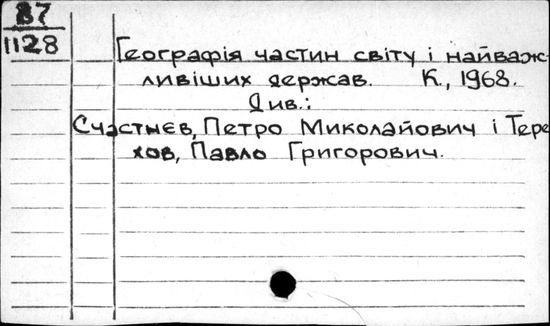 В7
1128
Географія частин світу і найваж-
ливіших держав. К., 1968.
Див.:
Счастнєв, Петро Миколайович і Тере
хов, Павло Григорович.